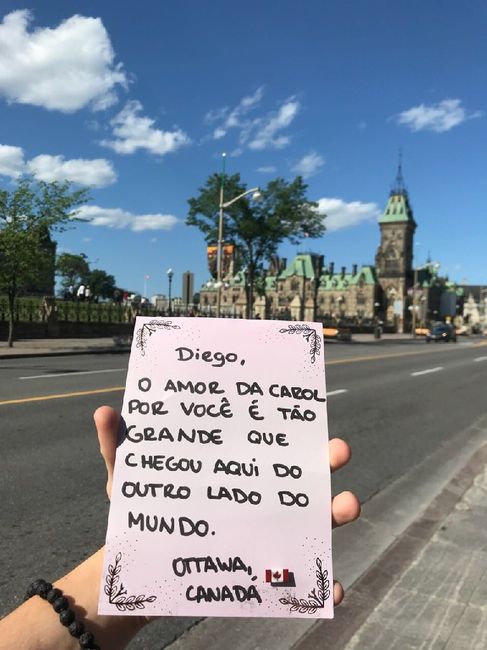 Diego,
O AMOR DA CAROL
POR VOCÊ É TÃO
GRANDE QUE
CHEGOU AQUI DO
OUTRO LADO DO
MUNDO.
OTTAWA,
CANADÁ